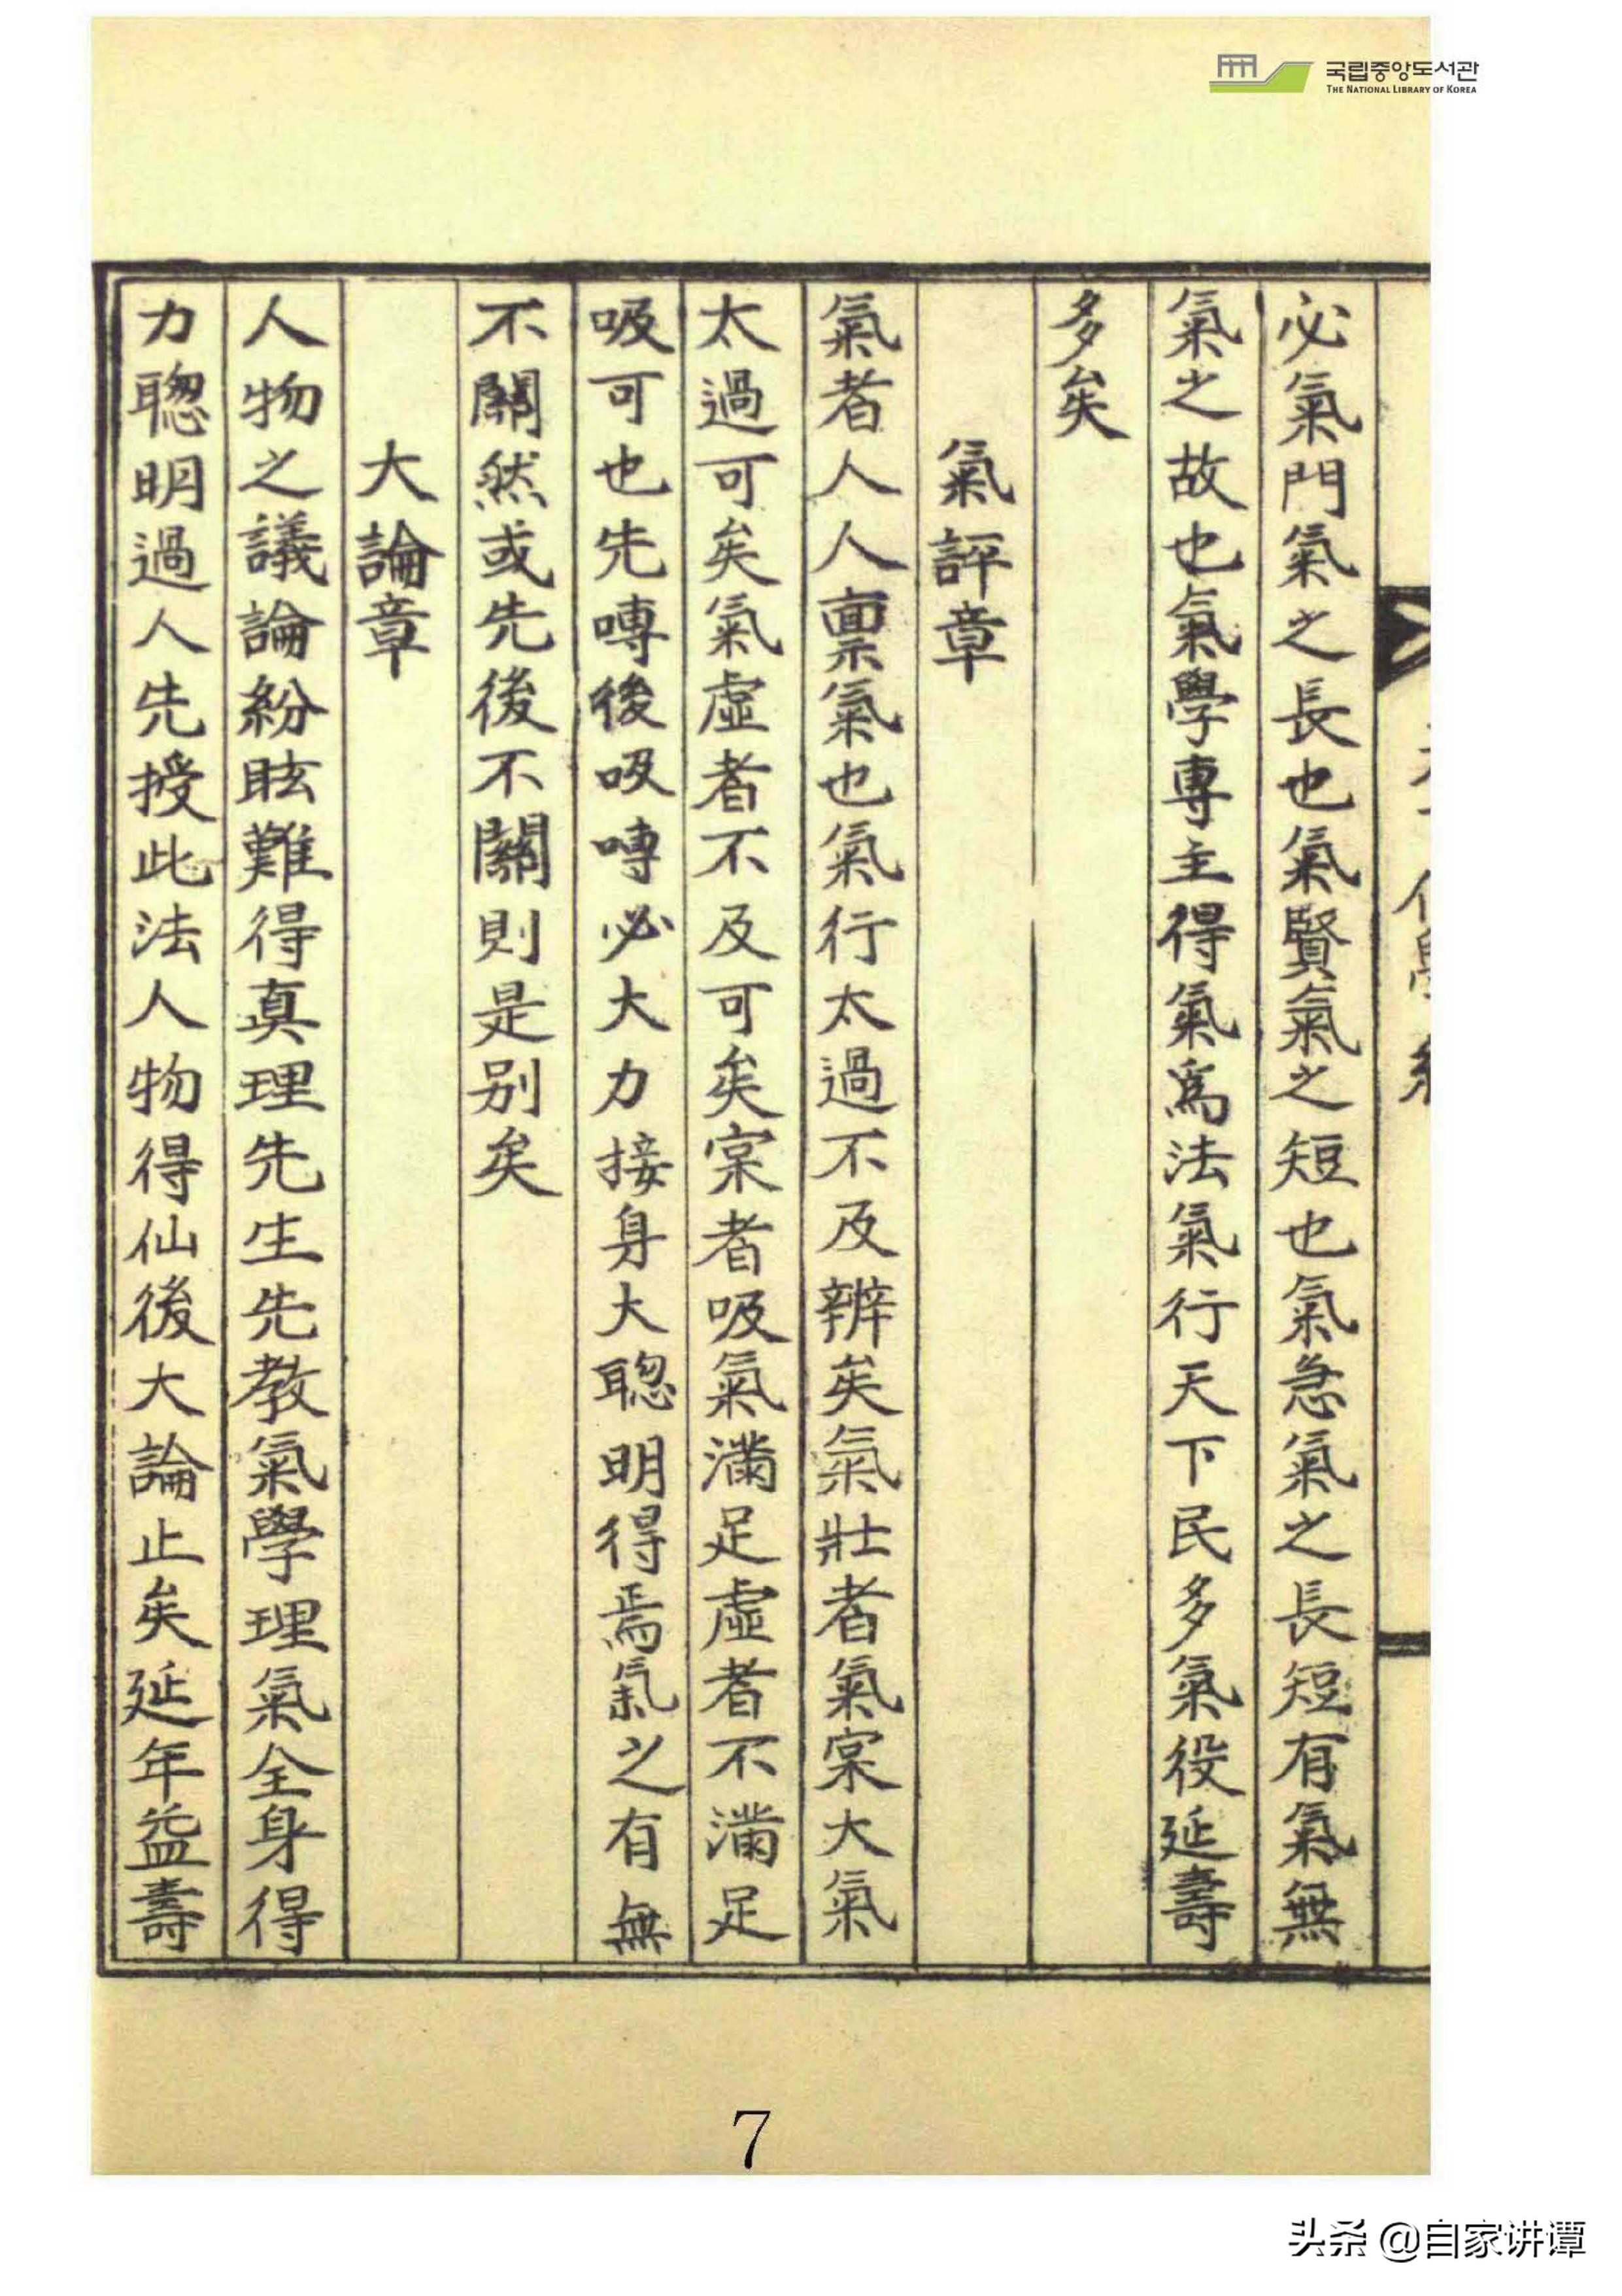 국립중앙도서관
THE NATIONAL LIBRARY OF KOREA
必氣門氣之長也氣賢氣之短也氣急氣之長短有氣無
氣之故也氣學專主得氣爲法氣行天下民多氣役延壽
多矣
氣評章
氣者人人稟氣也氣行太過不及辨矣氣壯者氣寀大氣
太過可矣氣虛者不及可矣寀者吸氣滿足虛者不滿足
吸可也先嘑後吸嘑必大力接身大聰明得焉氣之有無
不關然或先後不關則是別矣
大論章
人物之議論紛眩難得真理先生先教氣學理氣全身得
力聰明過人先授此法人物得仙後大論止矣延年益壽
7
头条 @自家讲谭